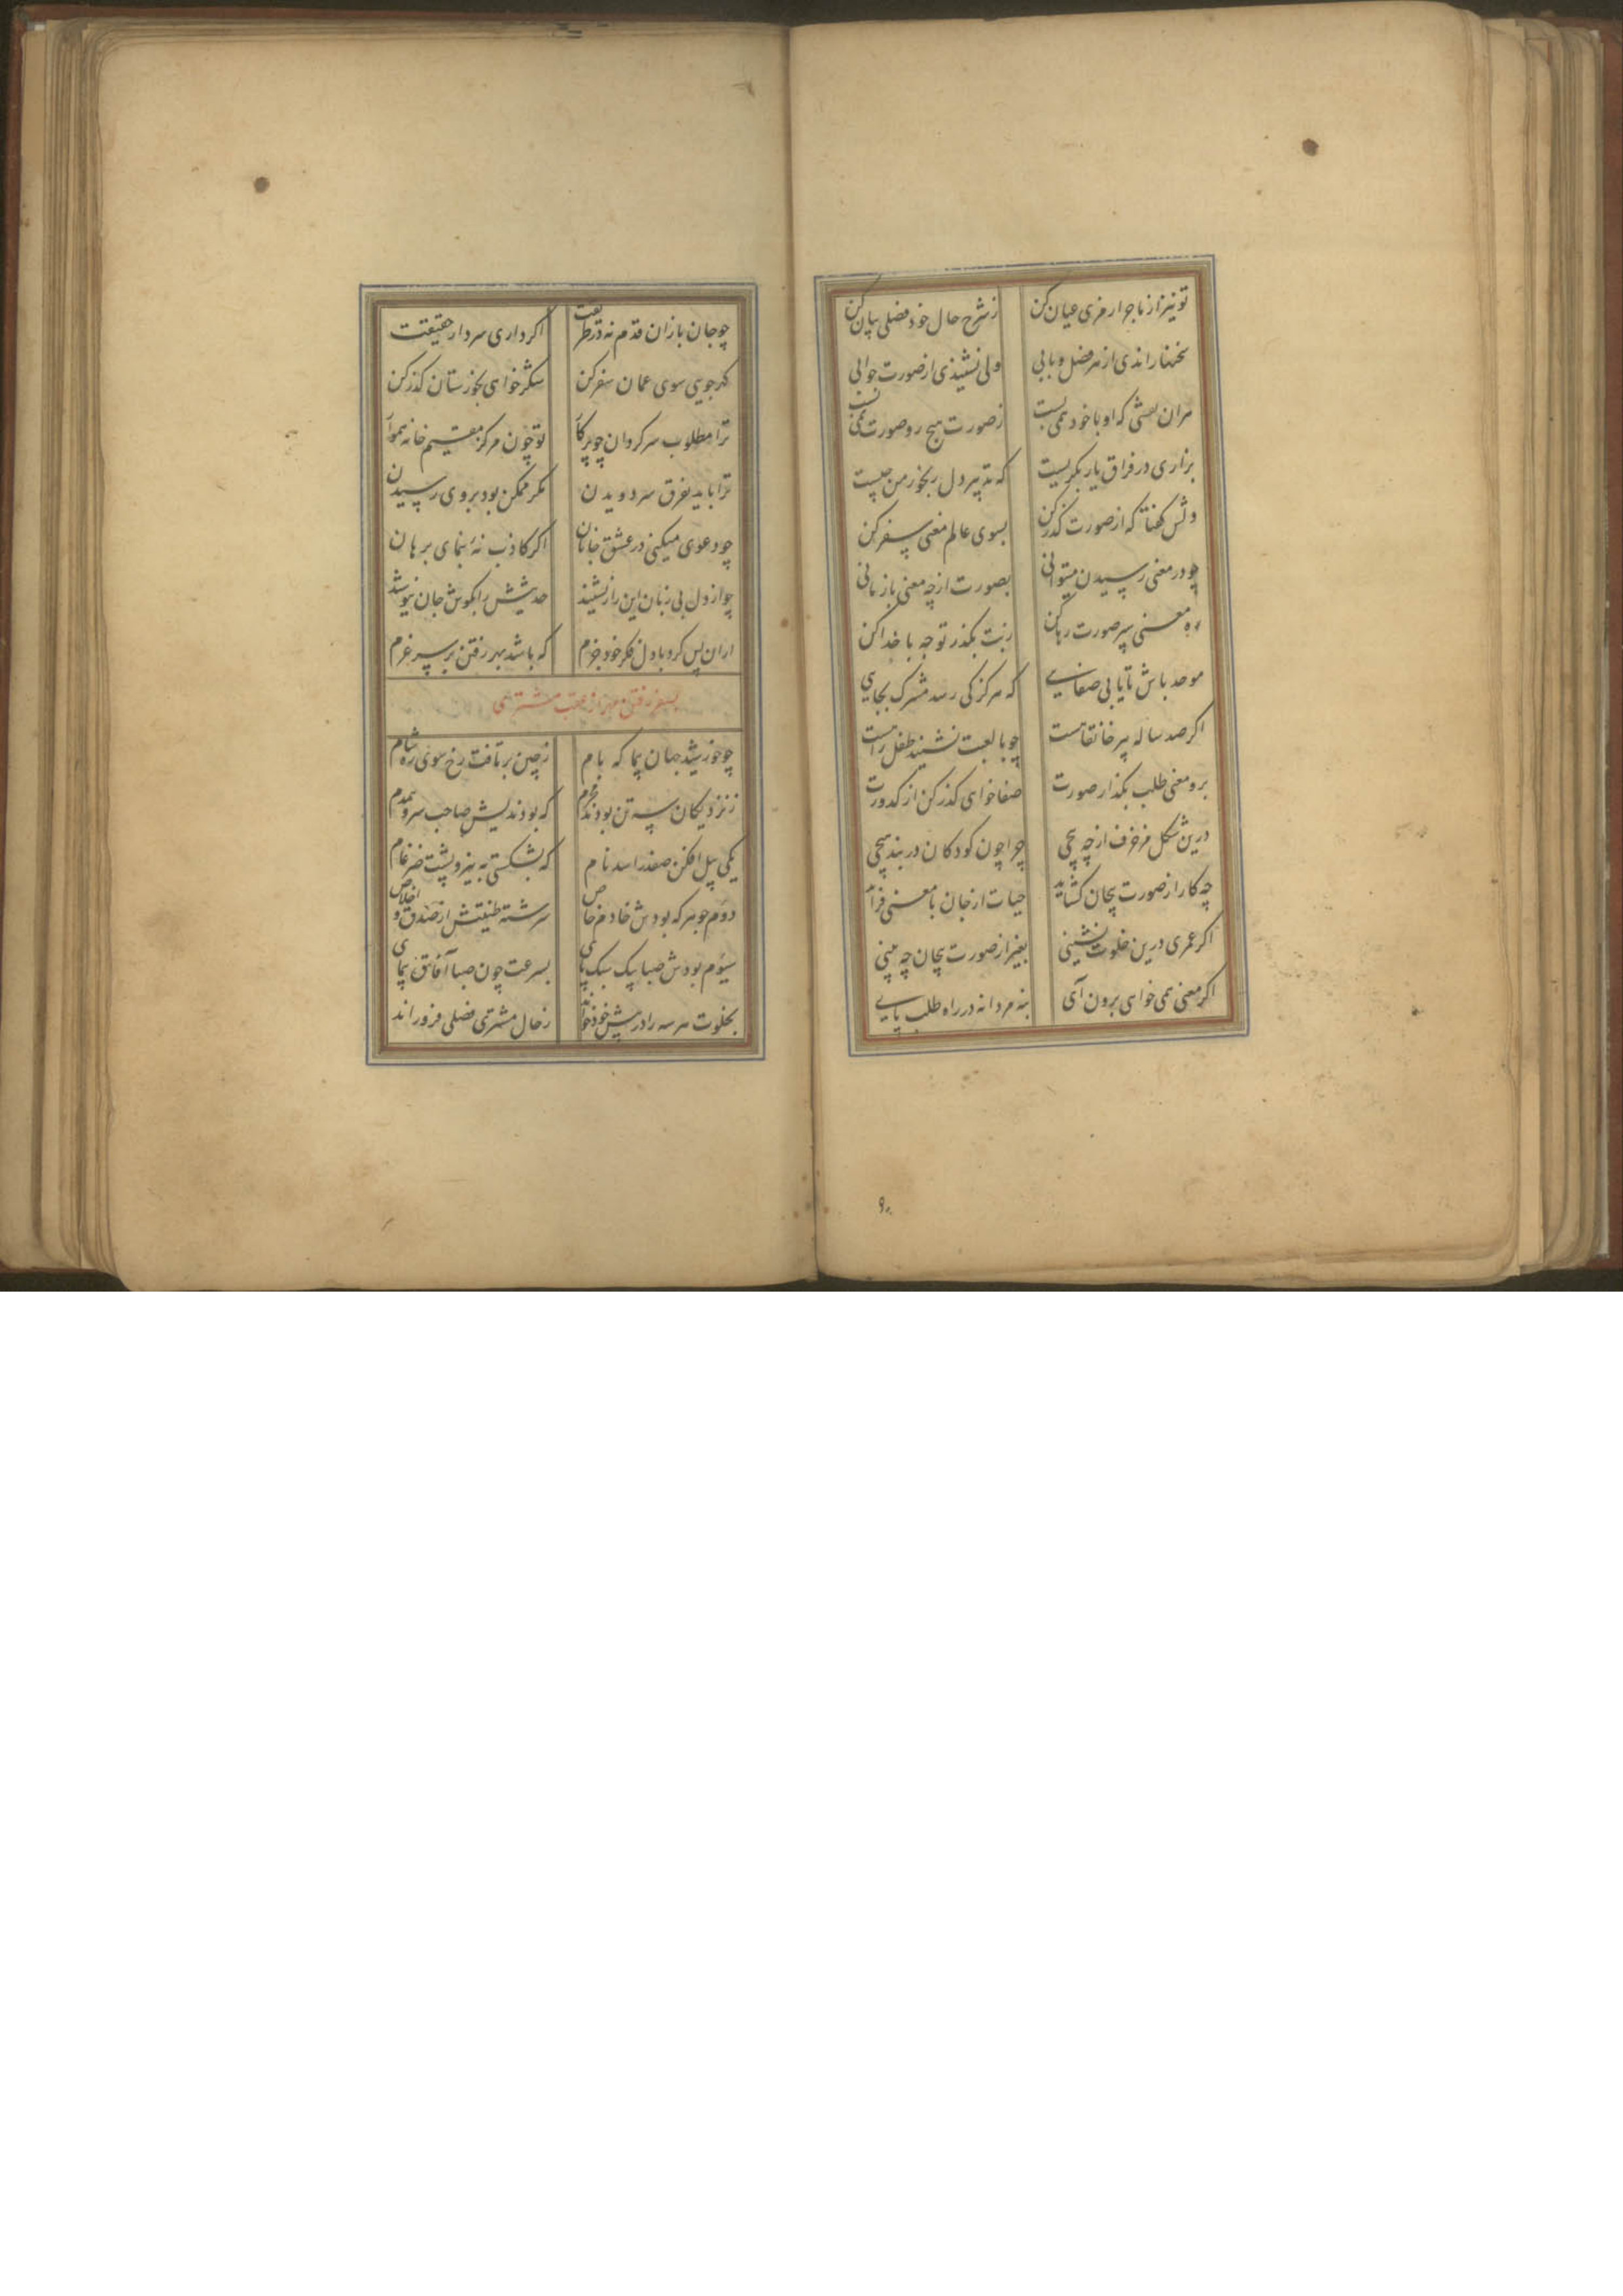 تو نیز از ماجرا رمزی عیان کن ز شرح حال خود فصلی بیان کن
سخنها راندی از هر فصل و بابی ولی نشنیدی از صورت جوابی
هران نقشی که او با خود همی بست ز صورت هیچ رو صورت نمی بست
بزاری در فراق یار بگریست که تدبیر دل رنجور من چیست
دلش گفتا که از صورت گذر کن بسوی عالم معنی سفر کن
چو در معنی رسیدن میتوانی بصورت از چه معنی باز مانی
ره معنی سپر صورت رها کن ز بت بگذر توجه با خدا کن
موحد باش تا یابی صفایی که هرگز کی رسد مشرک بجایی
اگر صد ساله پیر خانقاهست چو با لعبت نشیند طفل راهست
برو معنی طلب بگذار صورت صفا خواهی گذر کن از کدورت
درین شکل مزخرف از چه پیچی چرا چون کودکان در بند هیچی
چه کار از صورت بیجان گشاید حیات از جان با معنی فزاید
اگر عمری درین خلوت نشینی بغیر از صورت بیجان چه بینی
اگر معنی همی خواهی برون آی بنه مردانه در راه طلب پای
۹۰
چو جان بازان قدم نه در طریقت اگر داری سر دار حقیقت
گهر جویی سوی عمان سفر کن شکر خواهی بخوزستان گذر کن
ترا مطلوب سرگردان چو پرگار تو چون مرکز مقیم خانه هموار
ترا باید بفرق سر دویدن مگر ممکن بود بر وی رسیدن
چو دعوی میکنی در عشق جانان اگر کاذب نهٔ بنمای برهان
چو از دل بی زبان این راز بشنید حدیثش را بگوش جان نیوشید
ازان پس کرد با دل فکر خود جزم که باشد بهر رفتن بر سر عزم
بسفر رفتن مهر از عقب مشتری
چو خورشید جهان پیما که بام ز چین بر تافت رخ سوی ره شام
ز نزدیکان سه تن بودند محرم که بودندیش صاحب سر و همدم
یکی پیل افکن صفدر اسد نام که بشکستی به نیرو پشت ضرغام
دوم جوهر که بودش خادم خاص سرشته طینتش از صدق و اخلاص
سیوم بودش صبا پیک سبک پای بسرعت چون صبا آفاق پیمای
بخلوت هر سه را در پیش خود خواند ز حال مشتری فصلی فرو راند